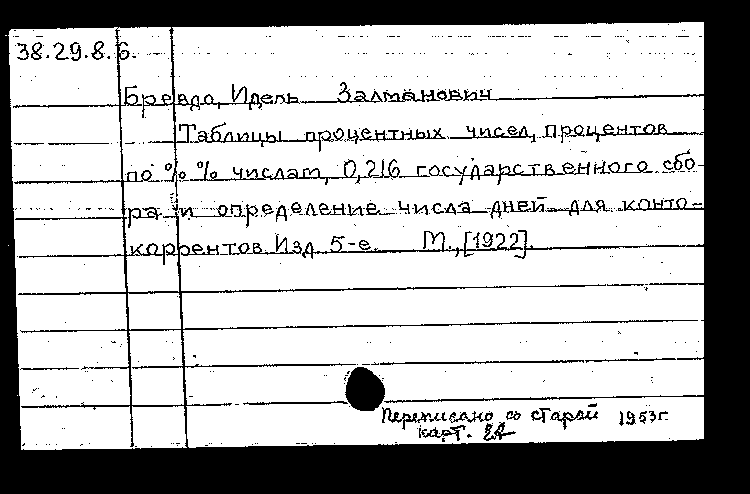 38.29.8.6.
Бревдо, Идель Залманович
Таблицы процентных чисел, процентов
по % % числам, 0,216 государственного сбо-
ра и определение числа дней для конто-
коррентов. Изд. 5-е. М., [1922].
Переписано со старой 1953 г.
карт.